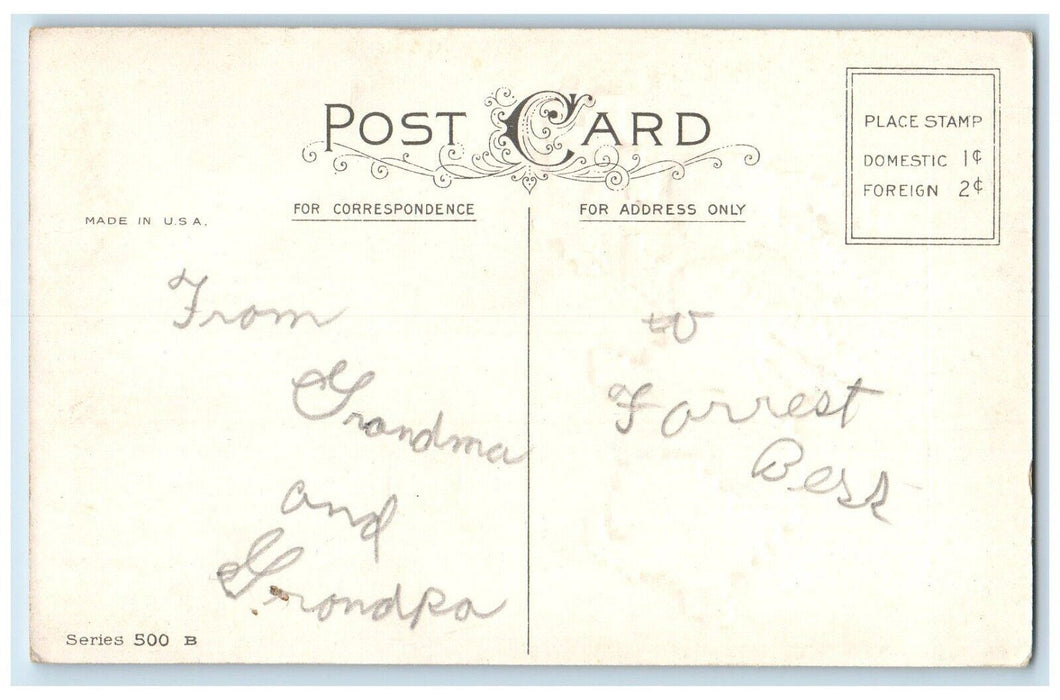 POST CARD
PLACE STAMP
DOMESTIC 1¢
FOREIGN 2¢
MADE IN U.S.A.
FOR CORRESPONDENCE
FOR ADDRESS ONLY
From
Grandma
and
Grandpa
to
Forrest
Best
Series 500 B